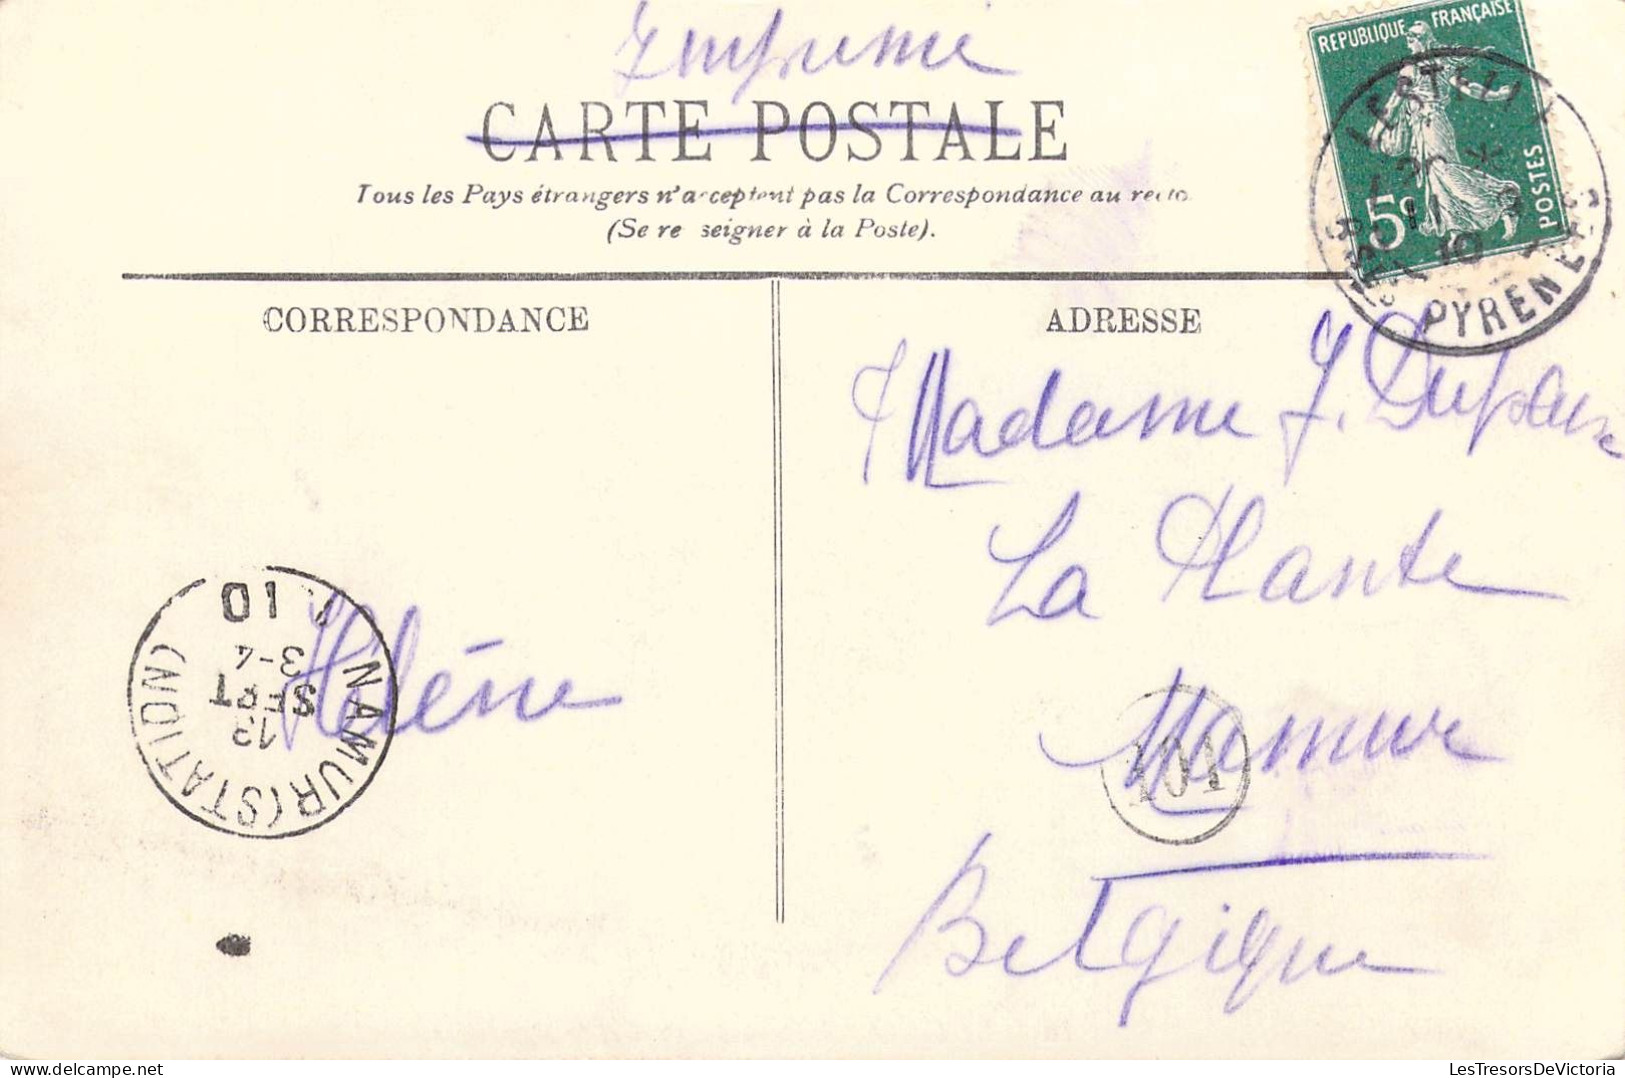 Imprimé
CARTE POSTALE
Tous les Pays étrangers n'acceptent pas la Correspondance au recto
(Se renseigner à la Poste).
REPUBLIQUE FRANÇAISE
POSTES
5c
11
10
PYRENEES
CORRESPONDANCE
ADRESSE
Madame J.
La Plante
Namur
Belgique
101
Hélène
NAMUR (STATION)
13
SEPT
3-4
10
LesTresorsDeVictoria